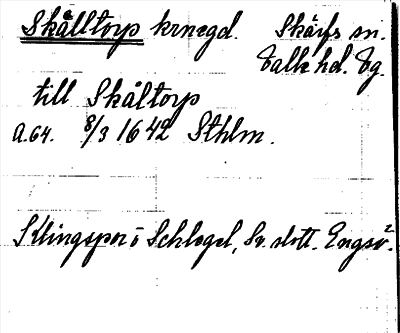 Skålltorp krnegd. Skärfs sn.
Valle hd. Vg.
till Skåltorp
a.64. 8/3 1642 Sthlm.
Klingspor o Schlegel, Sv. slott. Engsö.²